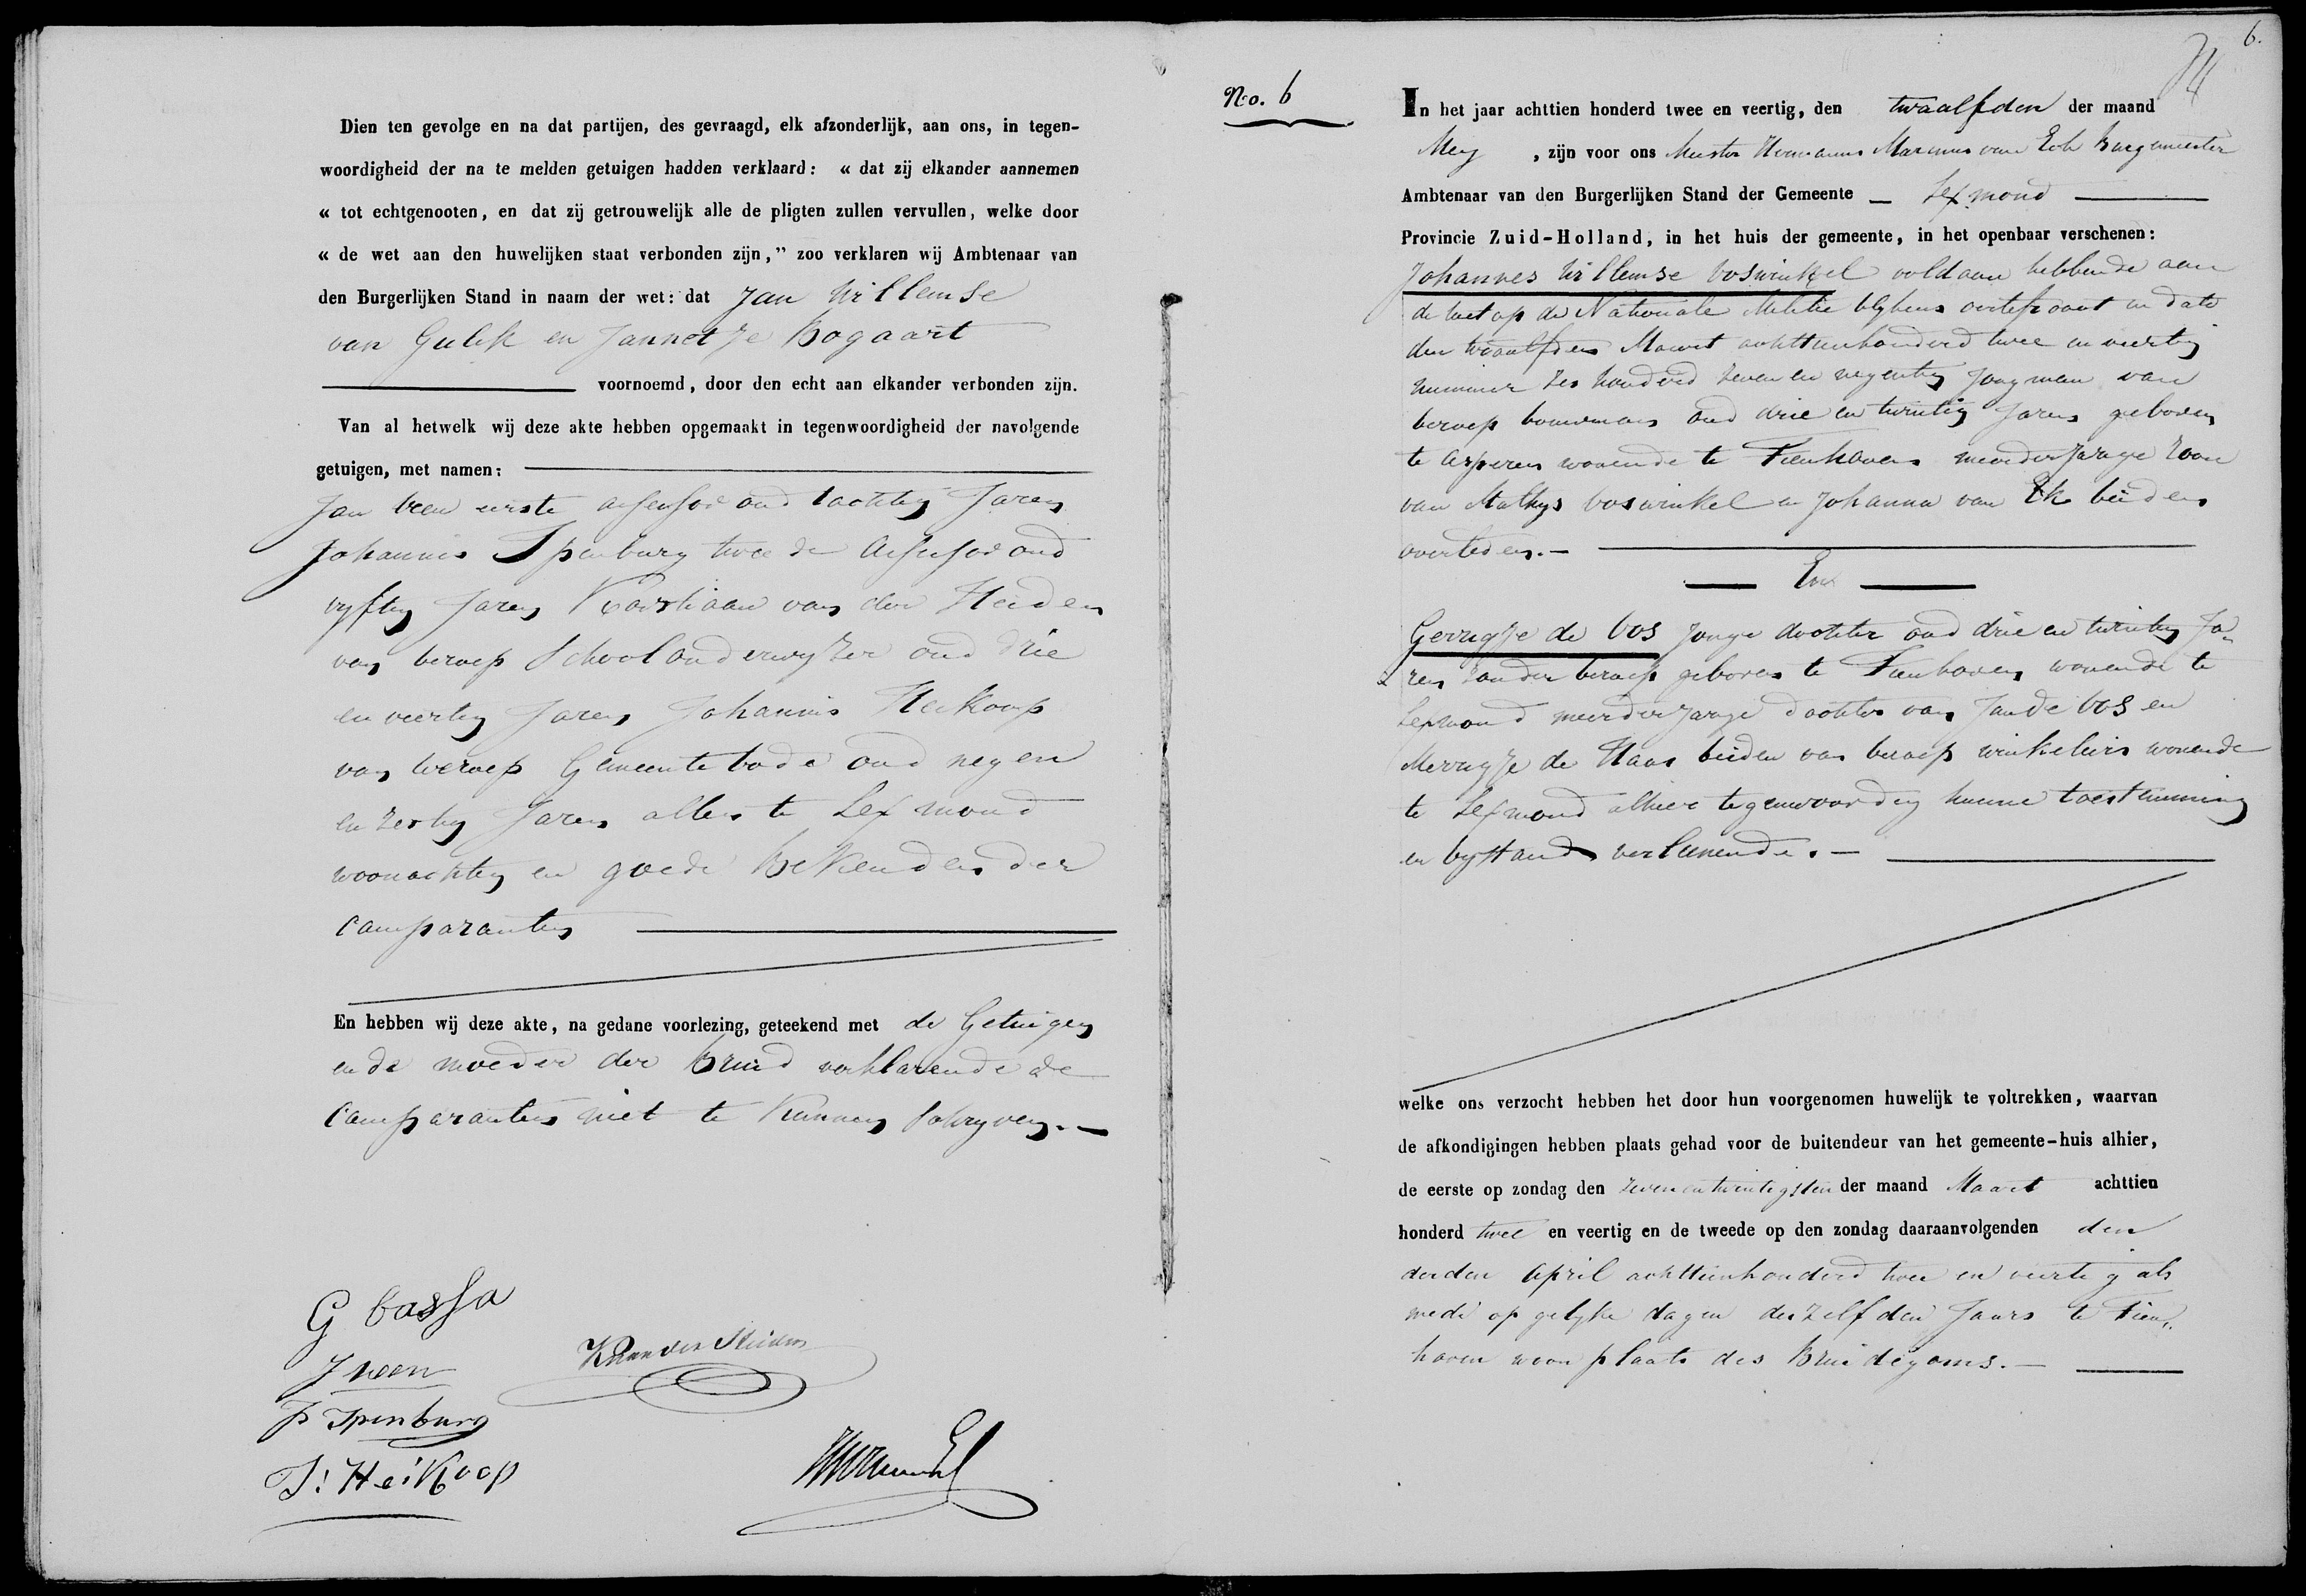 Dien ten gevolge en na dat partijen, des gevraagd, elk afzonderlijk, aan ons, in tegen-
woordigheid der na te melden getuigen hadden verklaard: « dat zij elkander aannemen
« tot echtgenooten, en dat zij getrouwelijk alle de pligten zullen vervullen, welke door
« de wet aan den huwelijken staat verbonden zijn,” zoo verklaren wij Ambtenaar van
den Burgerlijken Stand in naam der wet: dat Jan Willemse
van Gulik en Jannetje Bogaart
voornoemd, door den echt aan elkander verbonden zijn.
Van al hetwelk wij deze akte hebben opgemaakt in tegenwoordigheid der navolgende
getuigen, met namen:
Jan Veen eerste assessor oud tachtig Jaren
Johannis Spenburg twee de Assessor oud
vyftig Jaren Karstiaan van der Heiden
van beroep Schoolonderwyzer oud drie
en veertig Jaren Johannis Heikoop
van beroep Gemeente bode oud negen
en zestig Jaren allen te Lexmond
woonachtig en goede Bekenden der
Comparanten
En hebben wij deze akte, na gedane voorlezing, geteekend met de Getuigen
en de moeder der Bruid verklarende de
Comparanten niet te kunnen schryven.—
G bassa
J veen
Js Ipenburg
K van der Heiden
J: Heikoop
6.
No. 6
In het jaar achttien honderd twee en veertig, den twaalfden der maand
Mey, zijn voor ons Meester Hermanus Marinus van Ech Burgemeester
Ambtenaar van den Burgerlijken Stand der Gemeente — Lexmond —
Provincie Zuid-Holland, in het huis der gemeente, in het openbaar verschenen:
Johannes Willemse Voswinkel voldaan hebbende aan
de wet op de Nationale Militie blykens certificaat in dato
den twaalfden Maart achttienhonderd twee en veertig
nummer zes honderd zeven en negentig Jongman van
beroep bouwman oud drie en twintig Jaren geboren
te Asperen wonende te Tienhoven meerderjarige zoon
van Mathys Voswinkel en Johanna van Ek beiden
overleden.—
— En —
Gerrigje de Vos Jonge dochter oud drie en twintig Ja-
ren zonder beroep geboren te Tienhoven wonende te
Lexmond meerderjarige dochter van Jan de Vos en
Merrigje de Haas beiden van beroep winkeliers wonende
te Lexmond alhier tegenwoordig hunne toestemming
en bystand verleenende.—
welke ons verzocht hebben het door hun voorgenomen huwelijk te voltrekken, waarvan
de afkondigingen hebben plaats gehad voor de buitendeur van het gemeente-huis alhier,
de eerste op zondag den zevenentwintigsten der maand Maart achttien
honderd twee en veertig en de tweede op den zondag daaraanvolgenden den
derden April achttienhonderd twee en veertig als
mede op gelyke dagen deszelfden Jaars te Tien-
hoven woonplaats des Bruidegoms.—